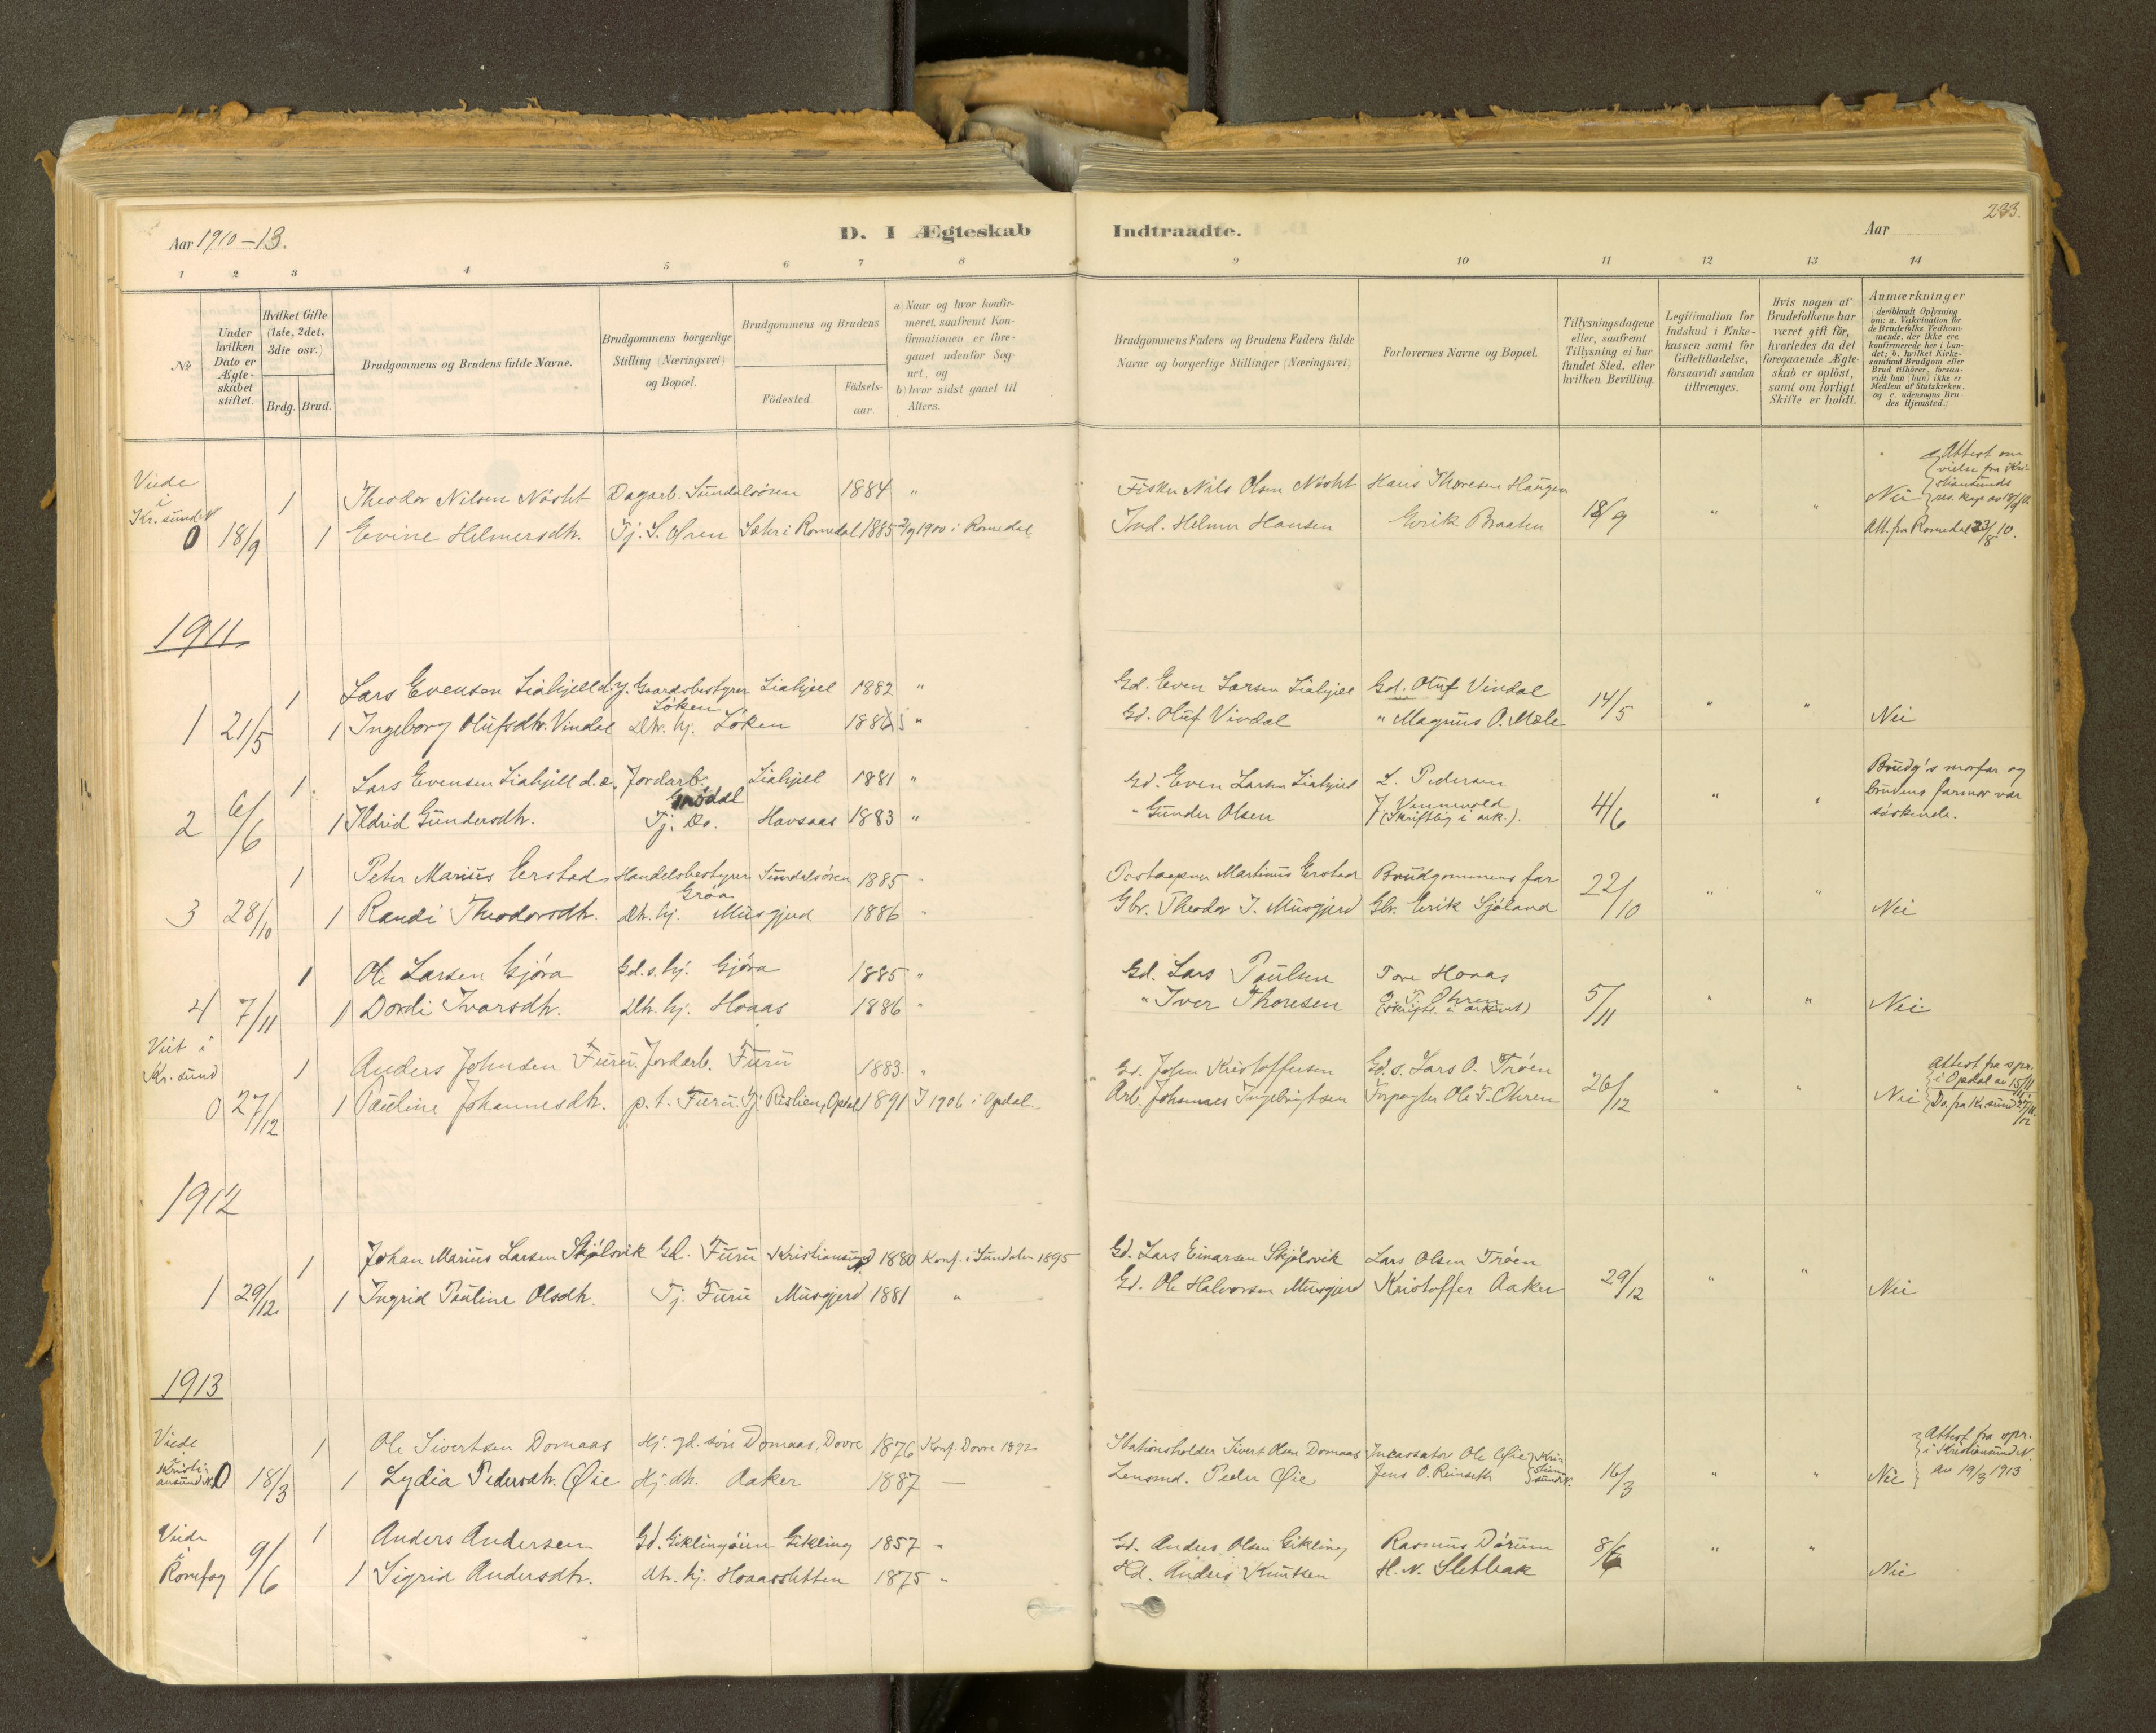 Aar 1910-13.
D. I Ægteskab
Indtraadte.
Aar
233.
1 2 3 4 5 6 7 8 9 10 11 12 13 14
No
Under hvilken Dato er Ægteskabet stiftet.
Hvilket Gifte (1ste, 2det, 3die osv.)
Brdg. Brud.
Brudgommens og Brudens fulde Navne.
Brudgommens borgerlige Stilling (Næringsvei) og Bopæl.
Brudgommens og Brudens
Fødested.
Fødselsaar.
a) Naar og hvor konfirmeret, saafremt Konfirmationen er foregaaet udenfor Sognet, og
b) hvor sidst gaaet til Alters.
Brudgommens Faders og Brudens Faders fulde Navne og borgerlige Stillinger (Næringsvei)
Forlovernes Navne og Bopæl.
Tillysningsdagene eller, saafremt Tillysning ei har fundet Sted, efter hvilken Bevilling.
Legitimation for Indskud i Enkekassen samt for Giftetilladelse, forsaavidt saadan tiltrænges.
Hvis nogen af Brudefolkene har været gift før, hvorledes da det foregaaende Ægteskab er opløst, samt om lovligt Skifte er holdt.
Anmærkninger (deriblandt Oplysning om: a. Vakcination for de Brudefolks Vedkommende, der ikke ere konfirmerede her i Landet; b. hvilket Kirkesamfund Brudgom eller Brud tilhører, forsaavidt han (hun) ikke er Medlem af Statskirken. og c. udensogns Brudes Hjemsted.)
Viede i Kr.sund N
1 Theodor Nilsen Nøsht Dagarb. Sundalsøren 1884 " Fisker Nils Olsen Nøsht Hans Thoresen Haugen 18/9 " " Nei Attest om vielse fra Kristiansunds res. kap. av 18/9 10
0 18/9 1 Evine Helmersdtr. Tj. S.øren Sæhr i Romedal 1885 2/9 1900 i Romedal Ind. Helmer Hansen Erik Braaten Att. fra Romedal 23/8 10.
1911
1 Lars Evensen Liahjell d.y. Gaardsbestyrer Løken Liahjell 1882 " Gd. Even Larsen Liahjell Gd. Oluf Vindal 14/5 " "
1 21/5 1 Ingeborg Olufsdtr. Vindal Dtr. hj. Løken 1886 " Gd. Oluf Vindal " Magnus O. Mæle Nei
1 Lars Evensen Liahjell d.æ. Jordarb. Grødal Liahjell 1881 " Gd. Even Larsen Liahjell L. Pedersen Brudg's morfar og brudens farmor var søskende.
2 6/6 1 Ildrid Gundersdtr. Tj. Do. Havsaas 1883 " " Gunder Olsen J. Vennevold (skriftlig i ark.). 4/6 "
1 Peter Marius Erstad Handelsbestyrer Grøa Sundalsøren 1885 " Postaapner Martinus Erstad Brudgommens far 22/10 " "
3 28/10 1 Randi Theodorsdtr. Dtr. hj. Musgjerd 1886 " Gbr. Theodor I. Musgjerd Gbr. Erik Sjøland Nei
1 Ole Larsen Gjøra Gd. s. hj. Gjøra 1885 " Gd. Lars Paulsen Tore Hoaas
4 7/11 1 Dordi Ivarsdtr. Dtr. hj. Hoaas 1886 " " Iver Thoresen O. T. Ohren (skriftl. i arkivet) 5/11 " " Nei
Viet i Kr.sund
1 Anders Johnsen Furu Jordarb. Furu 1883. " Gd. John Kristoffersen Gd. s. Lars O. Trøen Attest fra spr. i Opdal av 15/11 11.
0 27/12 1 Pauline Johannesdtr. p.t. Furu. Tj. Rislien, Opdal 1891 I 1906 i Opdal. Arb. Johannes Ingebrigtsen Forpagter Ole T. Ohren 26/12 " " Nei Do. fra Kr.sund 27/12 11.
1912
1 Johan Marius Larsen Skjølsvik Gd. Furu Kristiansund N. 1880 Konf. i Sundalen 1895 Gd. Lars Einarsen Skjølsvik Lars Olsen Trøen
1 29/12 1 Ingrid Pauline Olsdtr. Tj. Furu Musgjerd 1881 " Gd. Ole Halvorsen Musgjerd Kristoffer Aaker 29/12 " " Nei
1913
Viede i Kristiansund N.
1 Ole Sivertsen Domaas Hj. gd. søn Domaas, Dovre 1876 Konf. Dovre 1892 Stationsholder Sivert Olsen Domaas Incassator Ole Øie Kristiansund N. Attest fra spr. i Kristiansund N. av 19/3 1913
0 18/3 1 Lydia Pedersdtr. Øie Hj. dtr. Aaker 1887 — Lensmd. Peder Øie Jens O. Reinseth 16/3 " " Nei
Viede i Romfog
1 Anders Andersen Gd. Giklingøien Gikling 1857 " Gd. Anders Olsen Gikling Rasmus Dørum 8/6 " "
9/6 1 Sigrid Andersdtr. Dtr. hj. Hoaassletten 1875 " Hd. Anders Knutsen H. N. Sletbak Nei